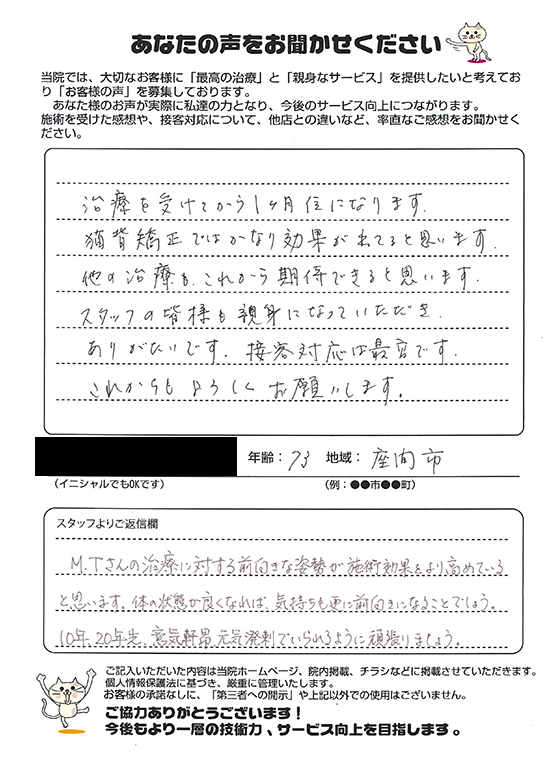 あなたの声をお聞かせください
当院では、大切なお客様に「最高の治療」と「親身なサービス」を提供したいと考えてお
り「お客様の声」を募集しております。
あなた様のお声が実際に私達の力となり、今後のサービス向上につながります。
施術を受けた感想や、接客対応について、他店との違いなど、率直なご感想をお聞かせく
ださい。
治療を受けてから1ヶ月位になります.
猫背矯正ではかなり効果が出てると思います.
他の治療も、これから期待できると思います.
スタッフの皆様も親身になっていただき.
ありがたいです. 接客対応は最高です.
これからもよろしくお願いします。
年齢：73 地域：座間市
（イニシャルでもOKです） （例：●●市●●町）
スタッフよりご返信欄
M.Tさんの治療に対する前向きな姿勢が施術効果をより高めている
と思います。体の状態が良くなれば、気持ちも更に前向きになることでしょう。
10年、20年先、意気軒昂、元気溌剌でいられるように頑張りましょう。
ご記入いただいた内容は当院ホームページ、院内掲載、チラシなどに掲載させていただきます。
個人情報保護法に基づき、厳重に管理いたします。
お客様の承諾なしに、「第三者への開示」や上記以外での使用はございません。
ご協力ありがとうございます！
今後もより一層の技術力、サービス向上を目指します。